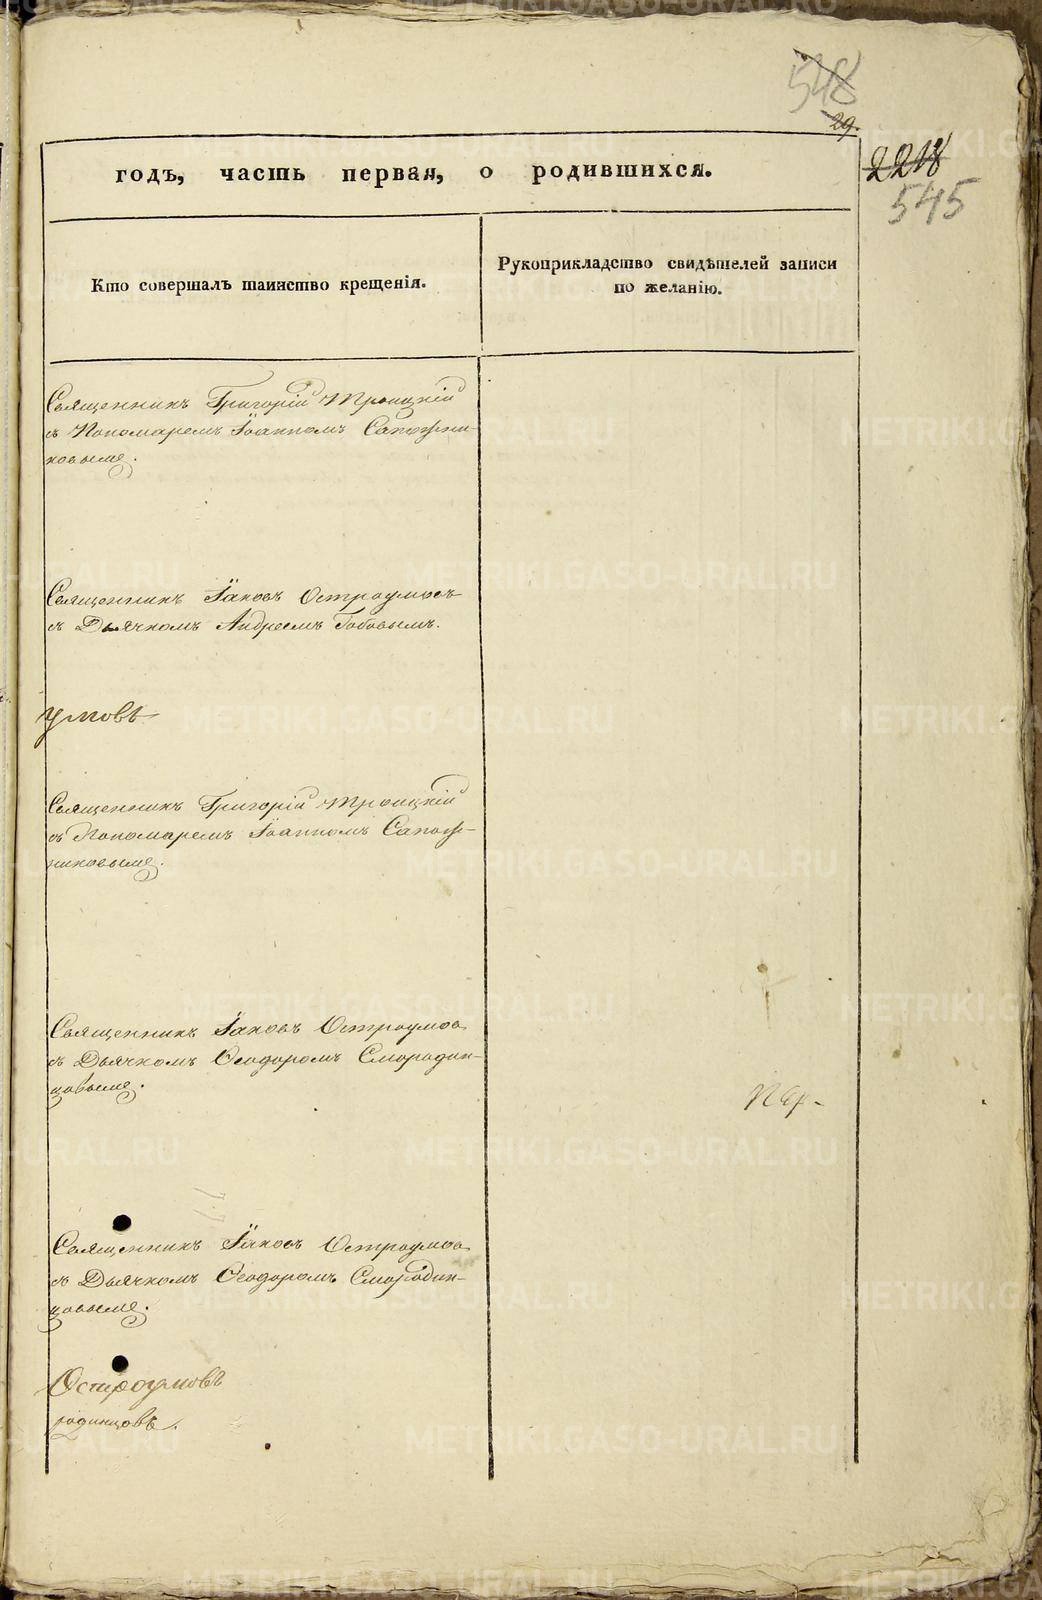 548
29.
2218
545
годъ, часть первая, о родившихся.
Кто совершалъ таинство крещенія.
Рукоприкладство свидѣтелей записи
по желанію.
Священникъ Григорій Троицкій
съ Пономаремъ Іоанномъ Сапожни-
ковымъ.
Священникъ Іаковъ Остроумовъ
съ Дьячкомъ Андреемъ Бобовымъ.
умовъ
Священникъ Григорій Троицкій
съ Пономаремъ Іоанномъ Сапож-
никовымъ.
Священникъ Іаковъ Остроумов
съ Дьячкомъ Ѳеодоромъ Смородин-
цовымъ.
Священникъ Іаковъ Остроумов
съ Дьячкомъ Ѳеодоромъ Смородин-
цовымъ.
Остроумовъ
родинцовъ.
METRIKI.GASO-URAL.RU